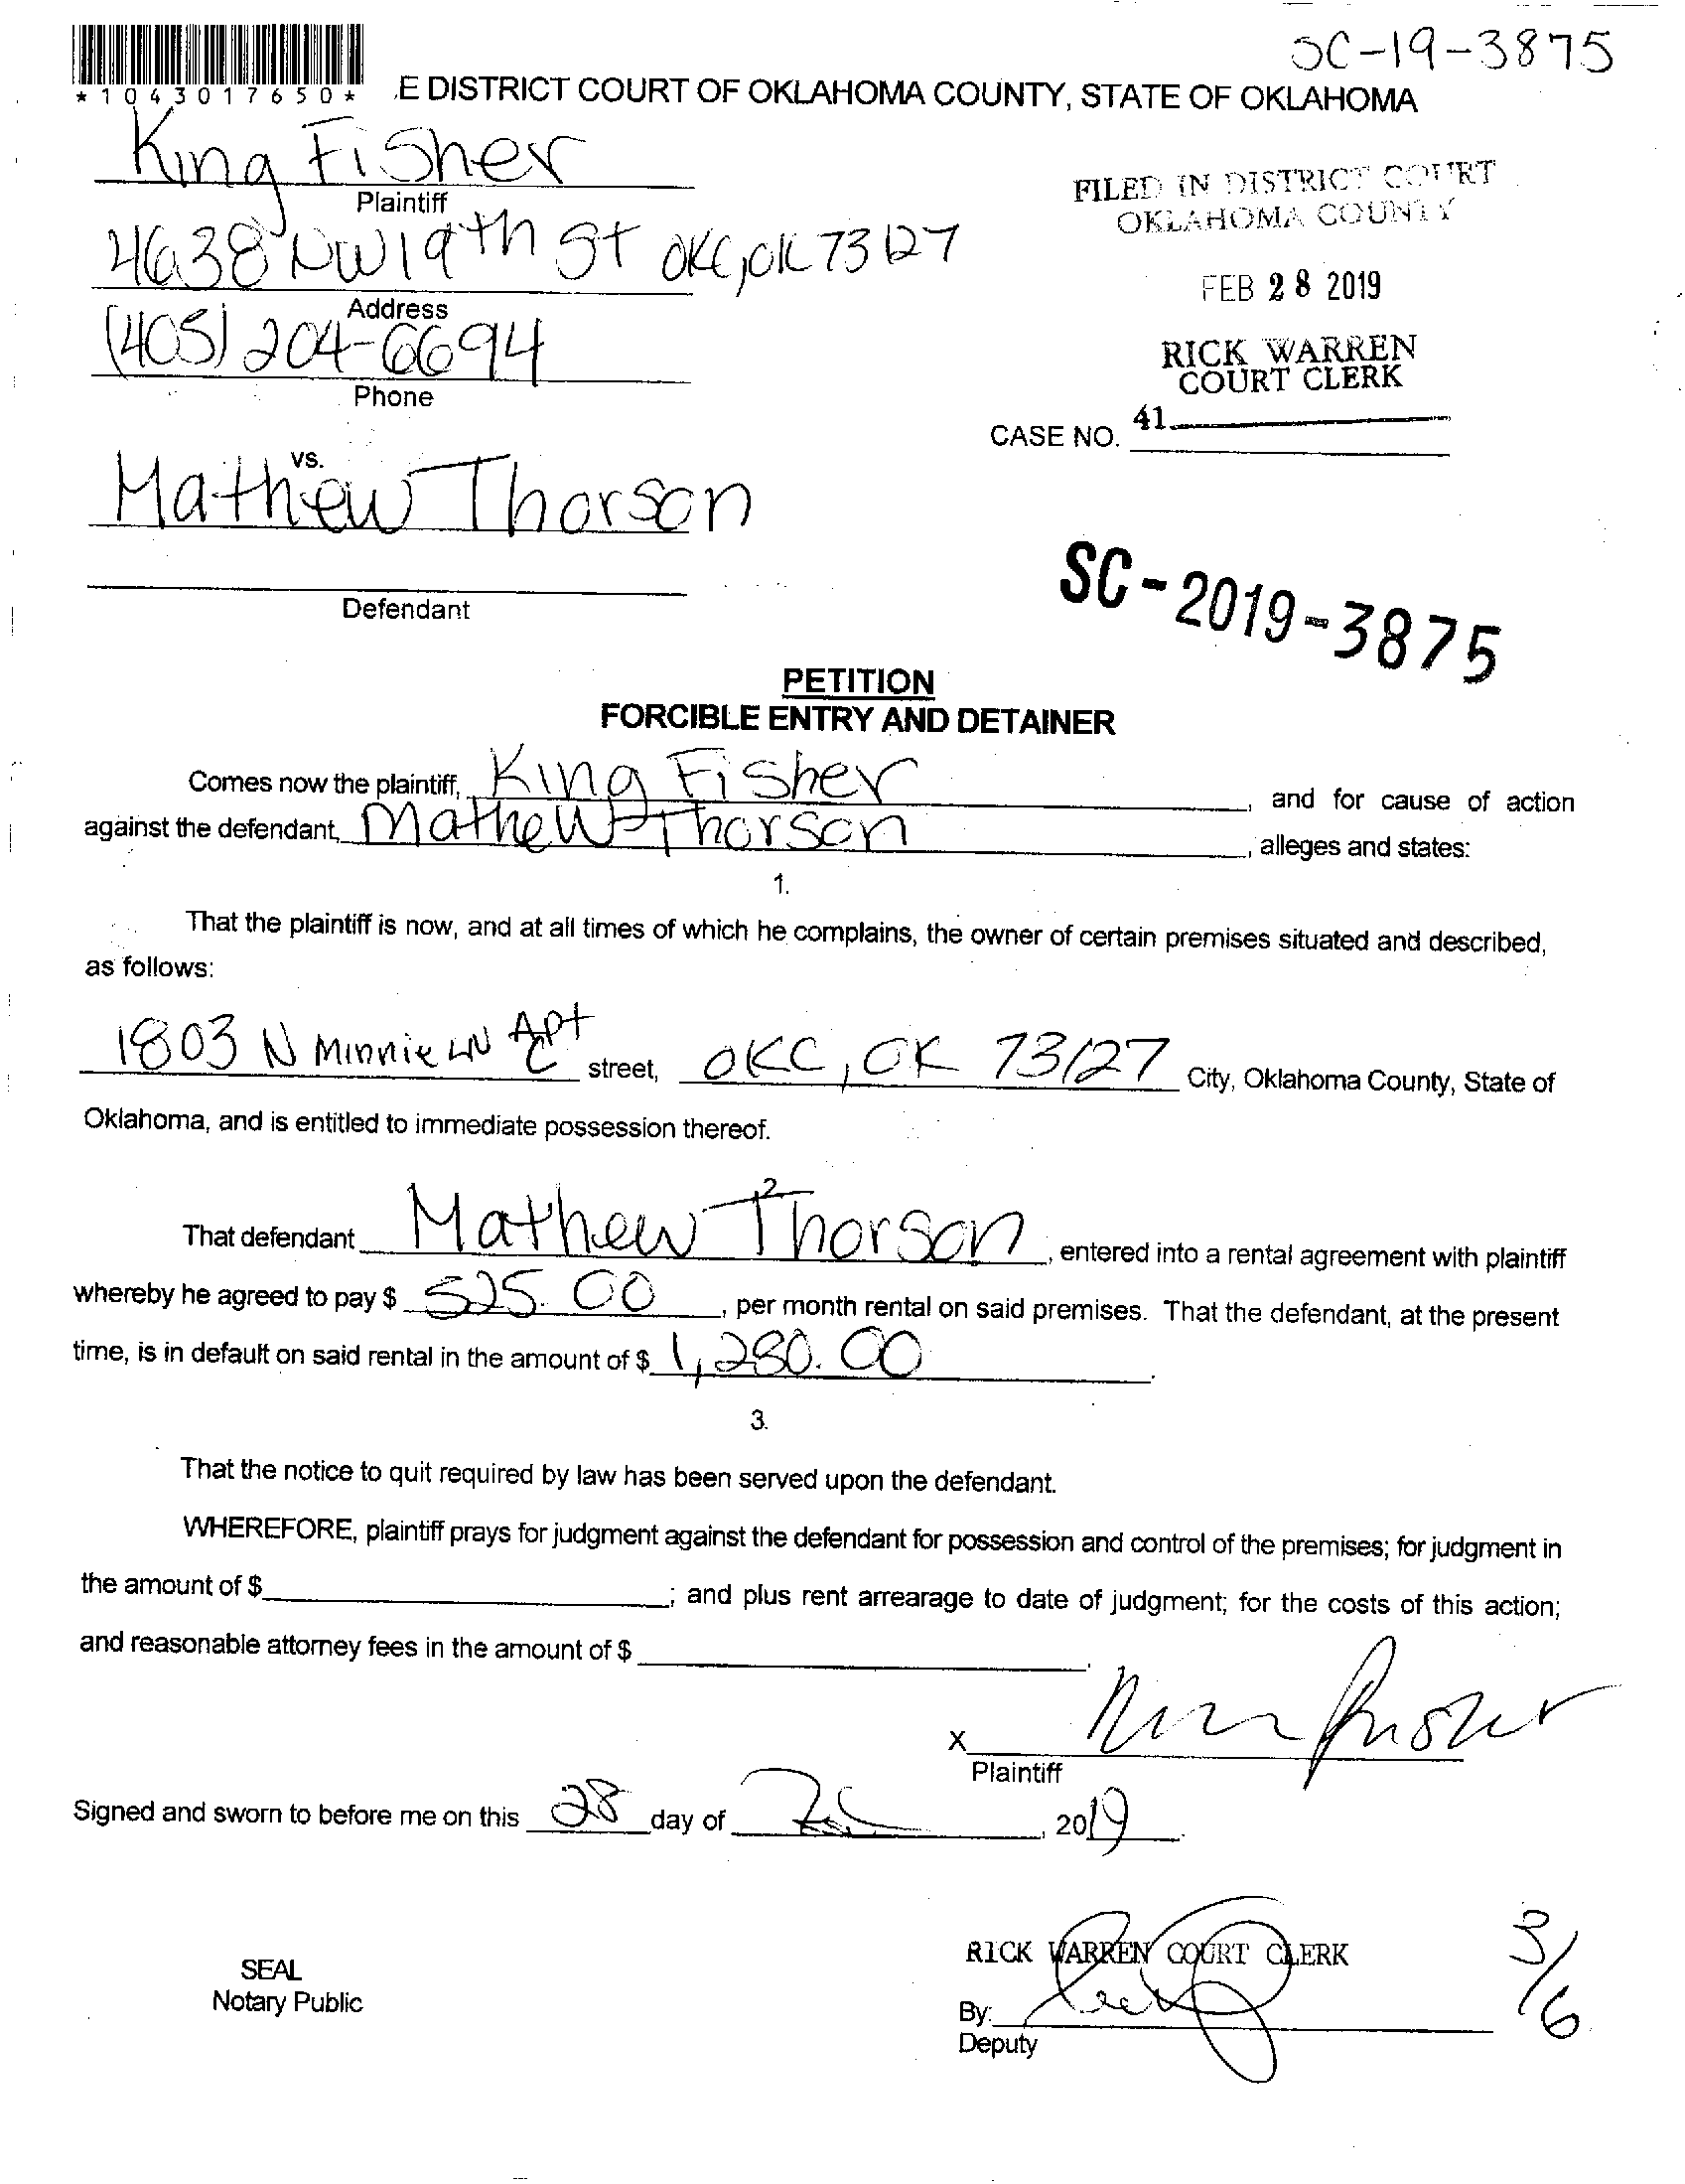 SC-19-3875
*1043017650*
E DISTRICT COURT OF OKLAHOMA COUNTY, STATE OF OKLAHOMA
King Fisher
Plaintiff
FILED IN DISTRICT COURT
OKLAHOMA COUNTY
4638 NW 19th St OKC, OK 73127
Address
FEB 28 2019
(405) 204-6694
Phone
RICK WARREN
COURT CLERK
CASE NO. 41
vs.
Mathew Thorson
Defendant
SC-2019-3875
PETITION
FORCIBLE ENTRY AND DETAINER
Comes now the plaintiff, King Fisher, and for cause of action
against the defendant, Mathew Thorson, alleges and states:
1.
That the plaintiff is now, and at all times of which he complains, the owner of certain premises situated and described,
as follows:
1803 N Minnie LN Apt C street, OKC, OK 73127 City, Oklahoma County, State of
Oklahoma, and is entitled to immediate possession thereof.
2
That defendant Mathew Thorson, entered into a rental agreement with plaintiff
whereby he agreed to pay $ 525.00, per month rental on said premises. That the defendant, at the present
time, is in default on said rental in the amount of $ 1,280.00.
3.
That the notice to quit required by law has been served upon the defendant.
WHEREFORE, plaintiff prays for judgment against the defendant for possession and control of the premises; for judgment in
the amount of $ ; and plus rent arrearage to date of judgment; for the costs of this action;
and reasonable attorney fees in the amount of $ .
X
Plaintiff
Signed and sworn to before me on this 28 day of , 2019.
RICK WARREN COURT CLERK
3/6
SEAL
Notary Public
By:
Deputy